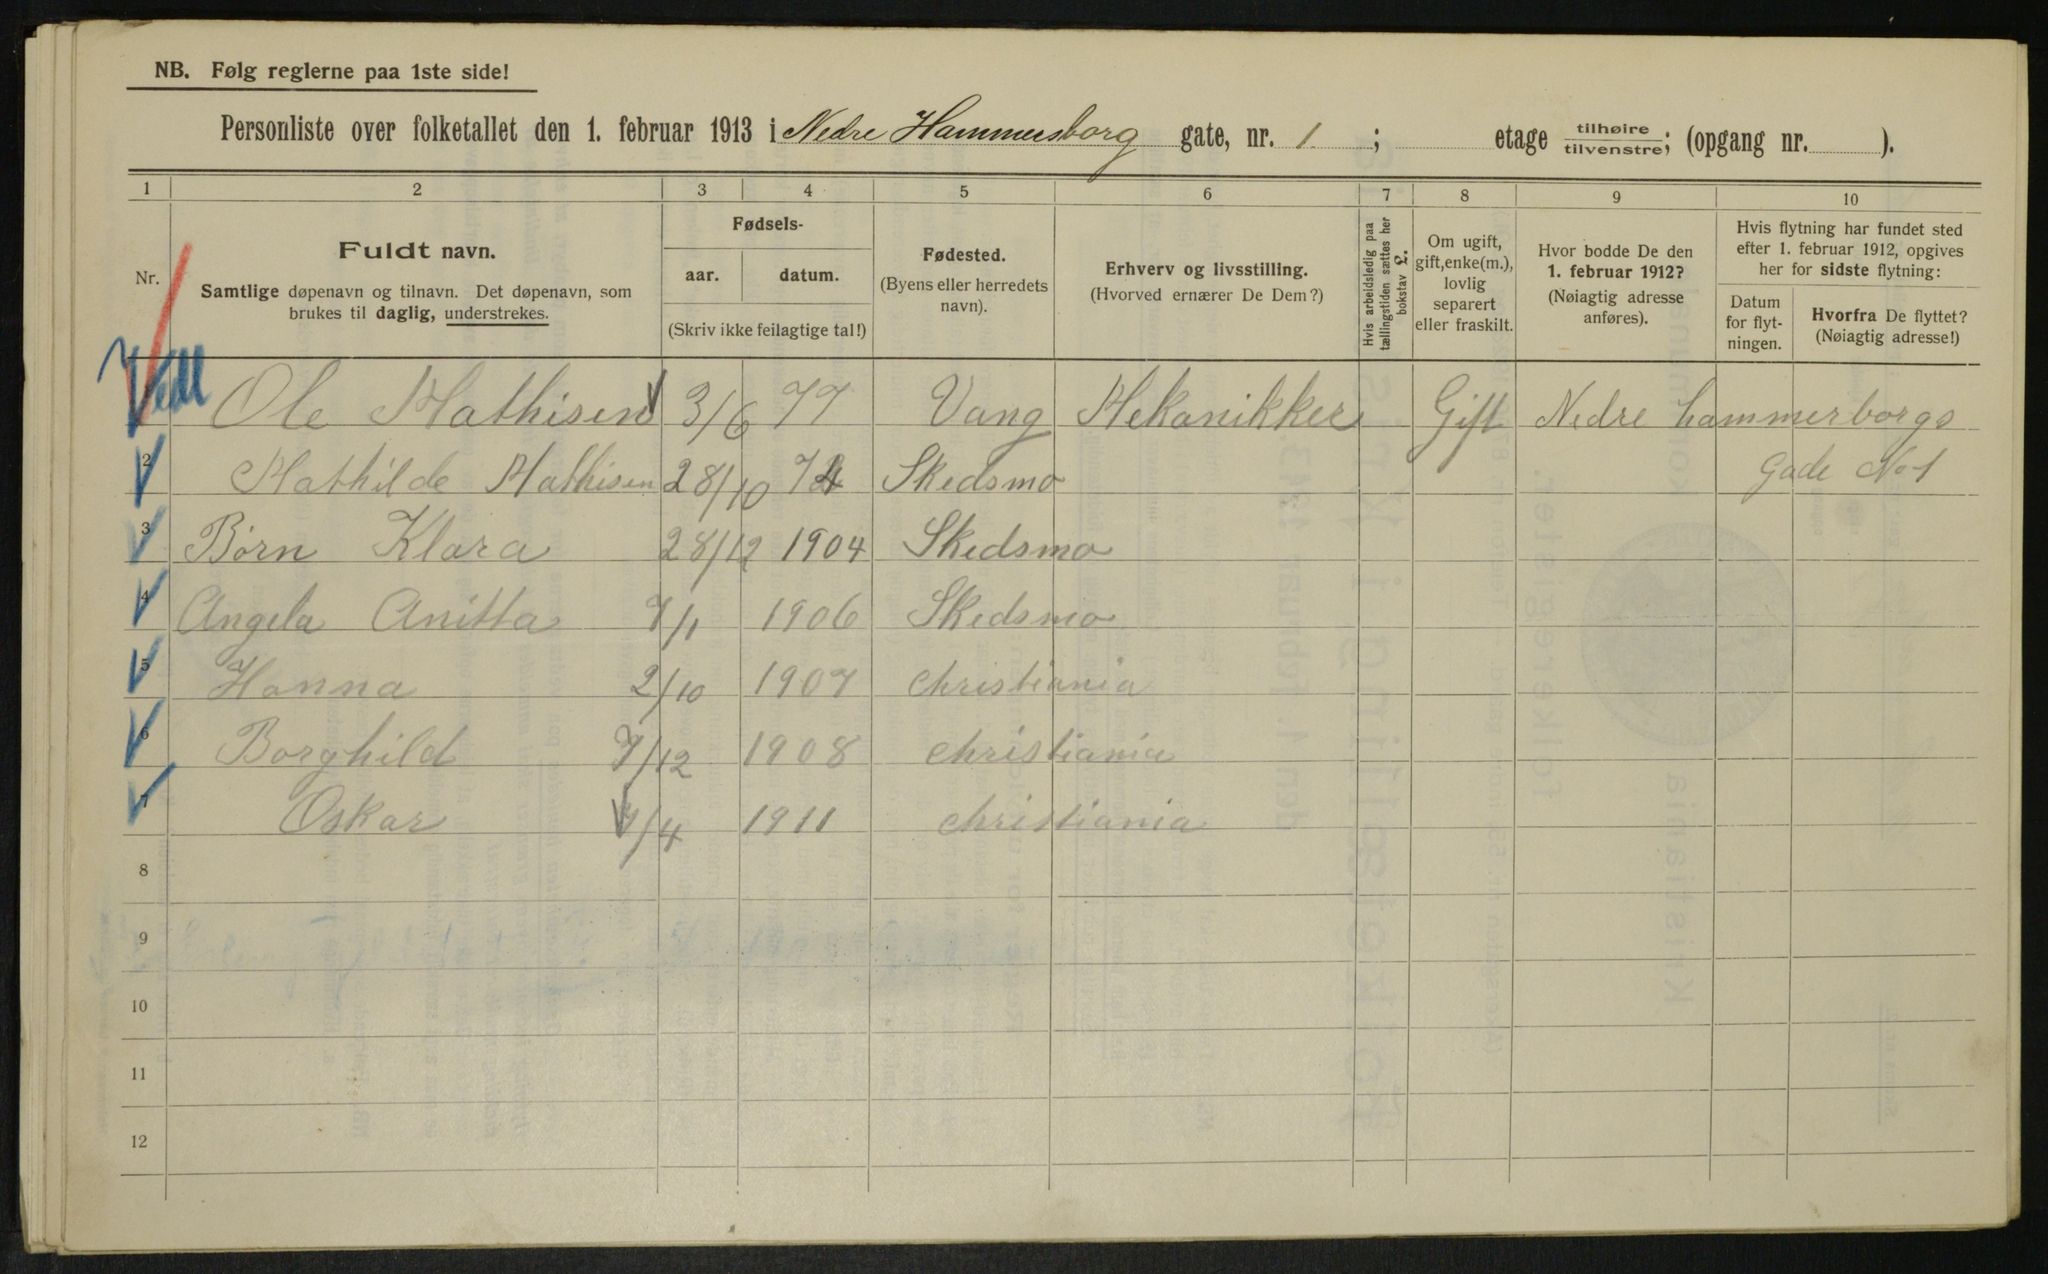 NB. Følg reglerne paa 1ste side!
Personliste over folketallet den 1. februar 1913 i Nedre Hammersborg gate, nr. 1 ; etage tilhøire/tilvenstre; (opgang nr. ).
1 2 3 4 5 6 7 8 9 10
Nr.
Fuldt navn.
Samtlige døpenavn og tilnavn. Det døpenavn, som
brukes til daglig, understrekes.
Fødsels-
aar. datum.
(Skriv ikke feilagtige tal!)
Fødested.
(Byens eller herredets
navn).
Erhverv og livsstilling.
(Hvorved ernærer De Dem?)
Hvis arbeidsledig paa
tællingstiden sættes her
bokstav L.
Om ugift,
gift, enke(m.),
lovlig
separert
eller fraskilt.
Hvor bodde De den
1. februar 1912?
(Nøiagtig adresse
anføres).
Hvis flytning har fundet sted
efter 1. februar 1912, opgives
her for sidste flytning:
Datum
for flyt-
ningen.
Hvorfra De flyttet?
(Nøiagtig adresse!)
Ole Mathisen 3/6 77 Vang Mekanikker Gift Nedre hammerborgs
2 Mathilde Mathisen 28/10 Skedsmo Gade No 1
3 Børn Klara 28/12 1904 Skedsmo
4 Angela Anitta 7/1 1906 Skedsmo
5 Hanna 2/10 1907 christiania
6 Borghild 7/12 1908 christiania
7 Oskar /4 1911 christiania
8
9
10
11
12